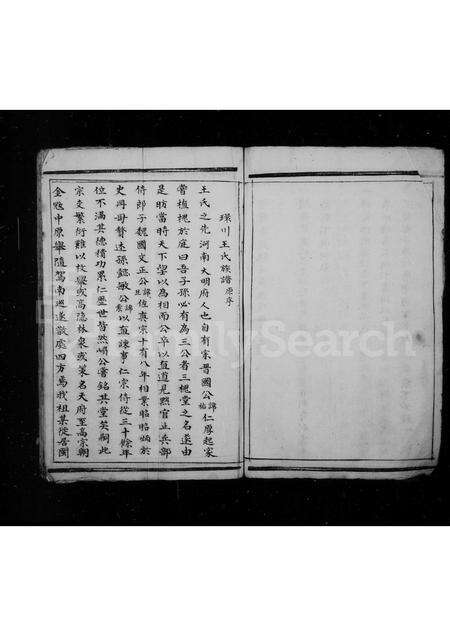 琅川王氏族譜原序
王氏之先河南大明府人也自有宋晋國公諱祐仁厚起家
嘗植槐於庭曰吾子孫必有為三公者三槐堂之名遂由
是昉當時天下望以為相而公卒以直道見黜官止兵部
侍郎子魏國文正公諱旦位真宗十有八年相業昭昭炳於
史冊毋贅述孫懿敏公諱素以直諫事仁宗侍從三十餘年
位不滿其德積功累仁歷世皆然嵋公嘗銘其堂矣嗣此
宗支繁衍難以枚舉或高隱林泉或策名天府至高宗朝
金虺中原舉隨駕南巡遂散處四方焉我祖某從居閩
FamilySearch